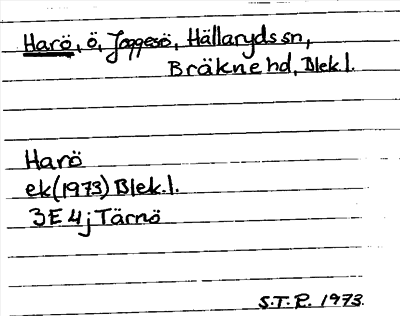 Harö, ö, Joggesö, Hällaryds sn,
Bräkne hd, Blek. l.
Harö
ek (1973) Blek. l.
3E 4j Tärnö
S.T.R. 1973.